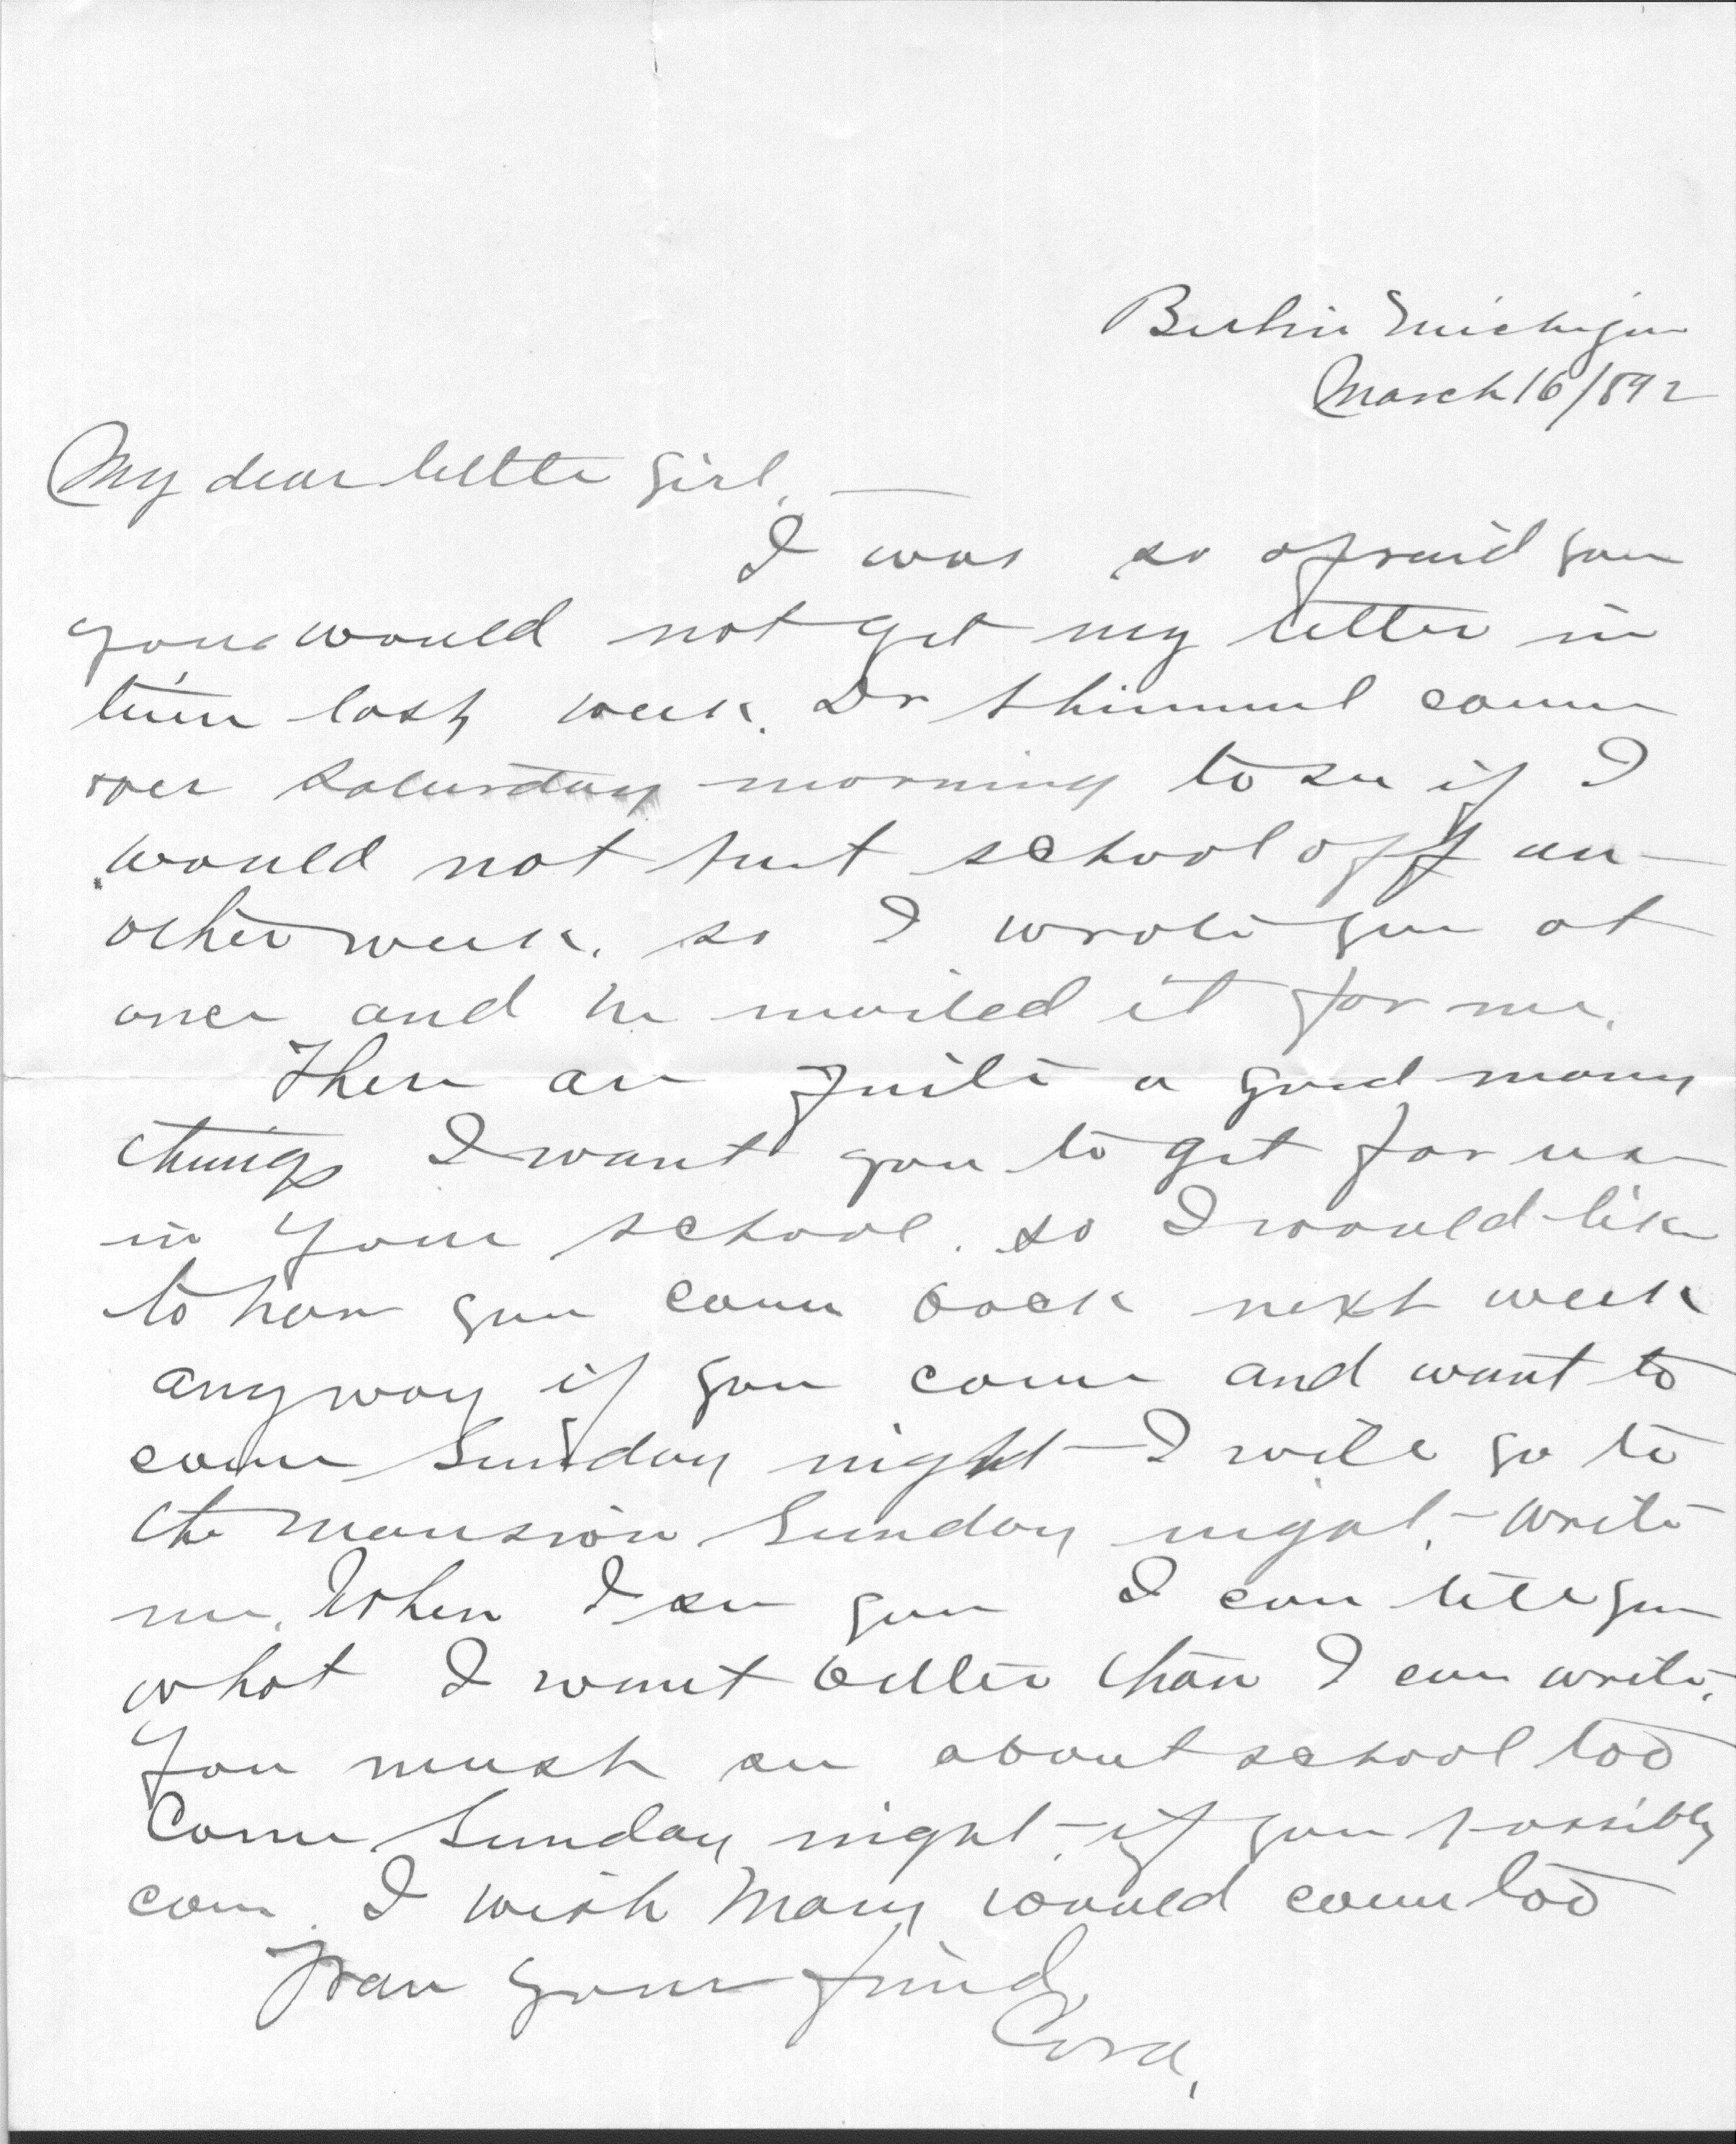 Berlin Michigan
March 16/892
My dear little girl, —
I was so afraid you
you would not get my letter in
time last week. Dr Shimmel came
over Saturday morning to see if I
would not put school off an-
other week. so I wrote you at
once and he mailed it for me.
There are quite a good many
things I want you to get for use
in your school. so I would like
to have you come back next week
anyway if you come and want to
come Sunday night I will go to
the mansion Sunday night. Write
me. When I see you I can tell you
what I want better than I can write.
You must see about school too
Come Sunday night if you possibly
can. I wish Mary would come too
From your friend,
Cora,